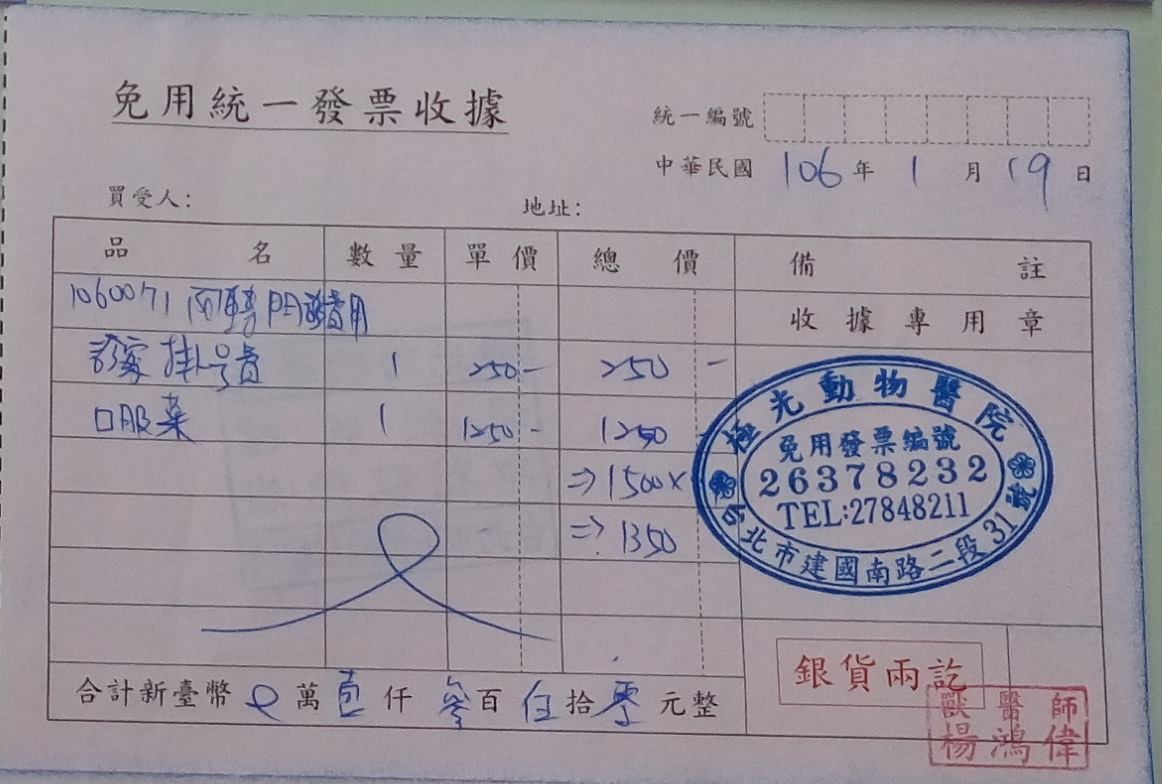 免用統一發票收據
統一編號
中華民國 106 年 1 月 19 日
買受人: 地址:
品名 數量 單價 總價 備註
1060071 門診費用
收據專用章
掛号費 1 250- 250 -
口服藥 1 1250- 1250
⇒1500×
⇒1350
極光動物醫院
免用發票編號
26378232
TEL:27848211
台北市建國南路二段31號
合計新臺幣 萬壹仟參百伍拾零元整
銀貨兩訖
獸醫師
楊鴻偉